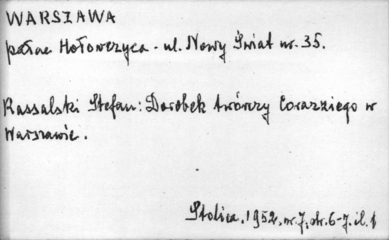 WARSZAWA
pałac Hołowczyca - ul. Nowy Świat nr. 35.
Kassalski Stefan: Dorobek twórczy Corazziego w
Warszawie.
Stolica, 1952, nr. 7, str. 6-7, il. 1